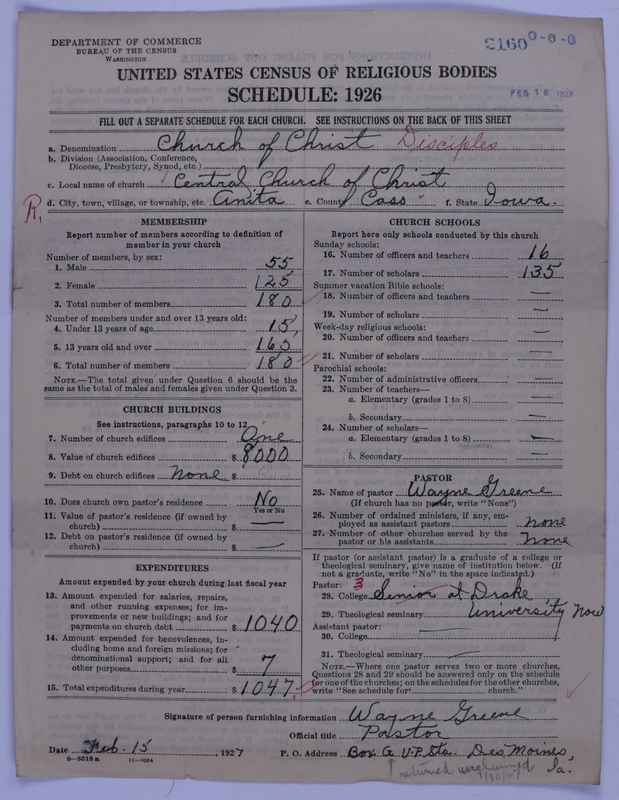 DEPARTMENT OF COMMERCE
BUREAU OF THE CENSUS
WASHINGTON
2160 0-6-0
UNITED STATES CENSUS OF RELIGIOUS BODIES
SCHEDULE: 1926
FEB 16 1927
FILL OUT A SEPARATE SCHEDULE FOR EACH CHURCH. SEE INSTRUCTIONS ON THE BACK OF THIS SHEET
a. Denomination Church of Christ Disciples
b. Division (Association, Conference, Diocese, Presbytery, Synod, etc.)
c. Local name of church Central Church of Christ
d. City, town, village, or township, etc. Anita e. County Cass f. State Iowa.
R.
MEMBERSHIP
Report number of members according to definition of
member in your church
Number of members, by sex:
1. Male 55
2. Female 125
3. Total number of members 180
Number of members under and over 13 years old:
4. Under 13 years of age 15
5. 13 years old and over 165
6. Total number of members 180
NOTE.—The total given under Question 6 should be the
same as the total of males and females given under Question 3.
CHURCH BUILDINGS
See instructions, paragraphs 10 to 12
7. Number of church edifices One
8. Value of church edifices $ 8000
9. Debt on church edifices None $
10. Does church own pastor's residence No
Yes or No
11. Value of pastor's residence (if owned by
church) $ —
12. Debt on pastor's residence (if owned by
church) $ —
EXPENDITURES
Amount expended by your church during last fiscal year
13. Amount expended for salaries, repairs,
and other running expenses; for im-
provements or new buildings; and for
payments on church debt $ 1040
14. Amount expended for benevolences, in-
cluding home and foreign missions; for
denominational support; and for all
other purposes $ 7
15. Total expenditures during year $ 1047
CHURCH SCHOOLS
Report here only schools conducted by this church
Sunday schools:
16. Number of officers and teachers 16
17. Number of scholars 135
Summer vacation Bible schools:
18. Number of officers and teachers —
19. Number of scholars —
Week-day religious schools:
20. Number of officers and teachers —
21. Number of scholars —
Parochial schools:
22. Number of administrative officers —
23. Number of teachers—
a. Elementary (grades 1 to 8) —
b. Secondary —
24. Number of scholars—
a. Elementary (grades 1 to 8) —
b. Secondary —
PASTOR
25. Name of pastor Wayne Greene
(If church has no pastor, write "None")
26. Number of ordained ministers, if any, em-
ployed as assistant pastors none
27. Number of other churches served by the
pastor or his assistants none
If pastor (or assistant pastor) is a graduate of a college or
theological seminary, give name of institution below. (If
not a graduate, write "No" in the space indicated.)
Pastor: 3
28. College Senior at Drake
29. Theological seminary University now
Assistant pastor:
30. College —
31. Theological seminary —
NOTE.—Where one pastor serves two or more churches,
Questions 28 and 29 should be answered only on the schedule
for one of the churches; on the schedules for the other churches,
write "See schedule for church."
Signature of person furnishing information Wayne Greene
Official title Pastor
Date Feb. 15, 1927 P. O. Address Box G U.P. Sta. Des Moines, Ia.
8—5518a 11—9034
returned unclaimed